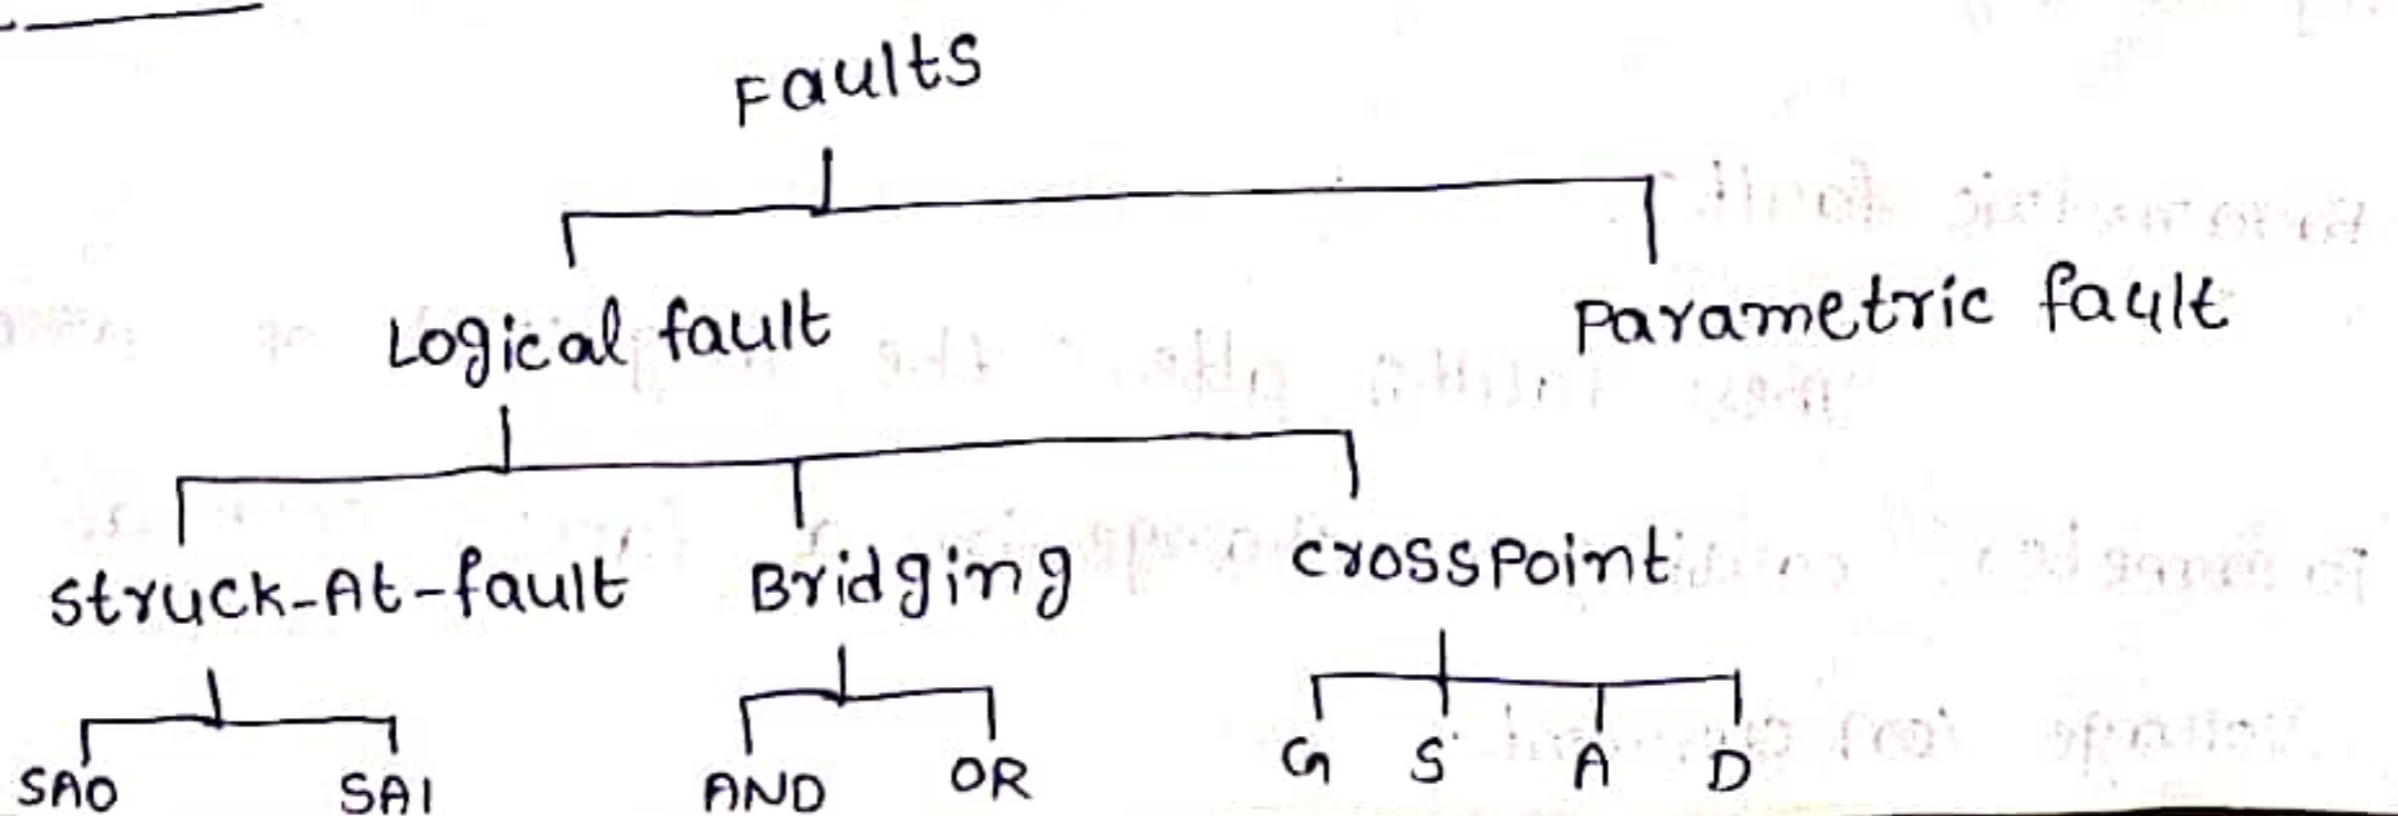 Faults
Logical fault Parametric fault
Struck-At-fault Bridging crosspoint
SA0 SA1 AND OR G S A D